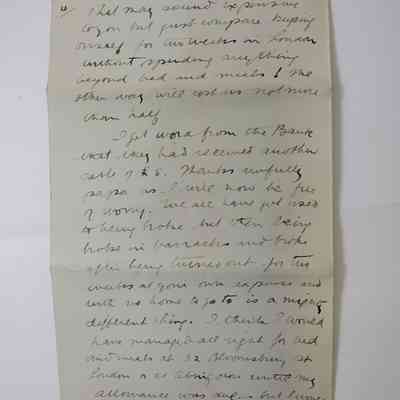 4. That may sound expensive
to you but just compare keeping
oneself for two weeks in London
without spending anything
beyond bed and meals & the
other way will cost us not more
than half
I got word from the Bank
that they had received another
cable of £8. Thanks awfully
papa as I will now be free
of worry. We all have got used
to being broke but then being
broke in barracks and broke
after being turned out for two
weeks at your own expenses and
with no home to go to is a mighty
different thing. I think I would
have managed all right for bed
and meals at 32 Bloomsbury St
London until my
allowance was due but